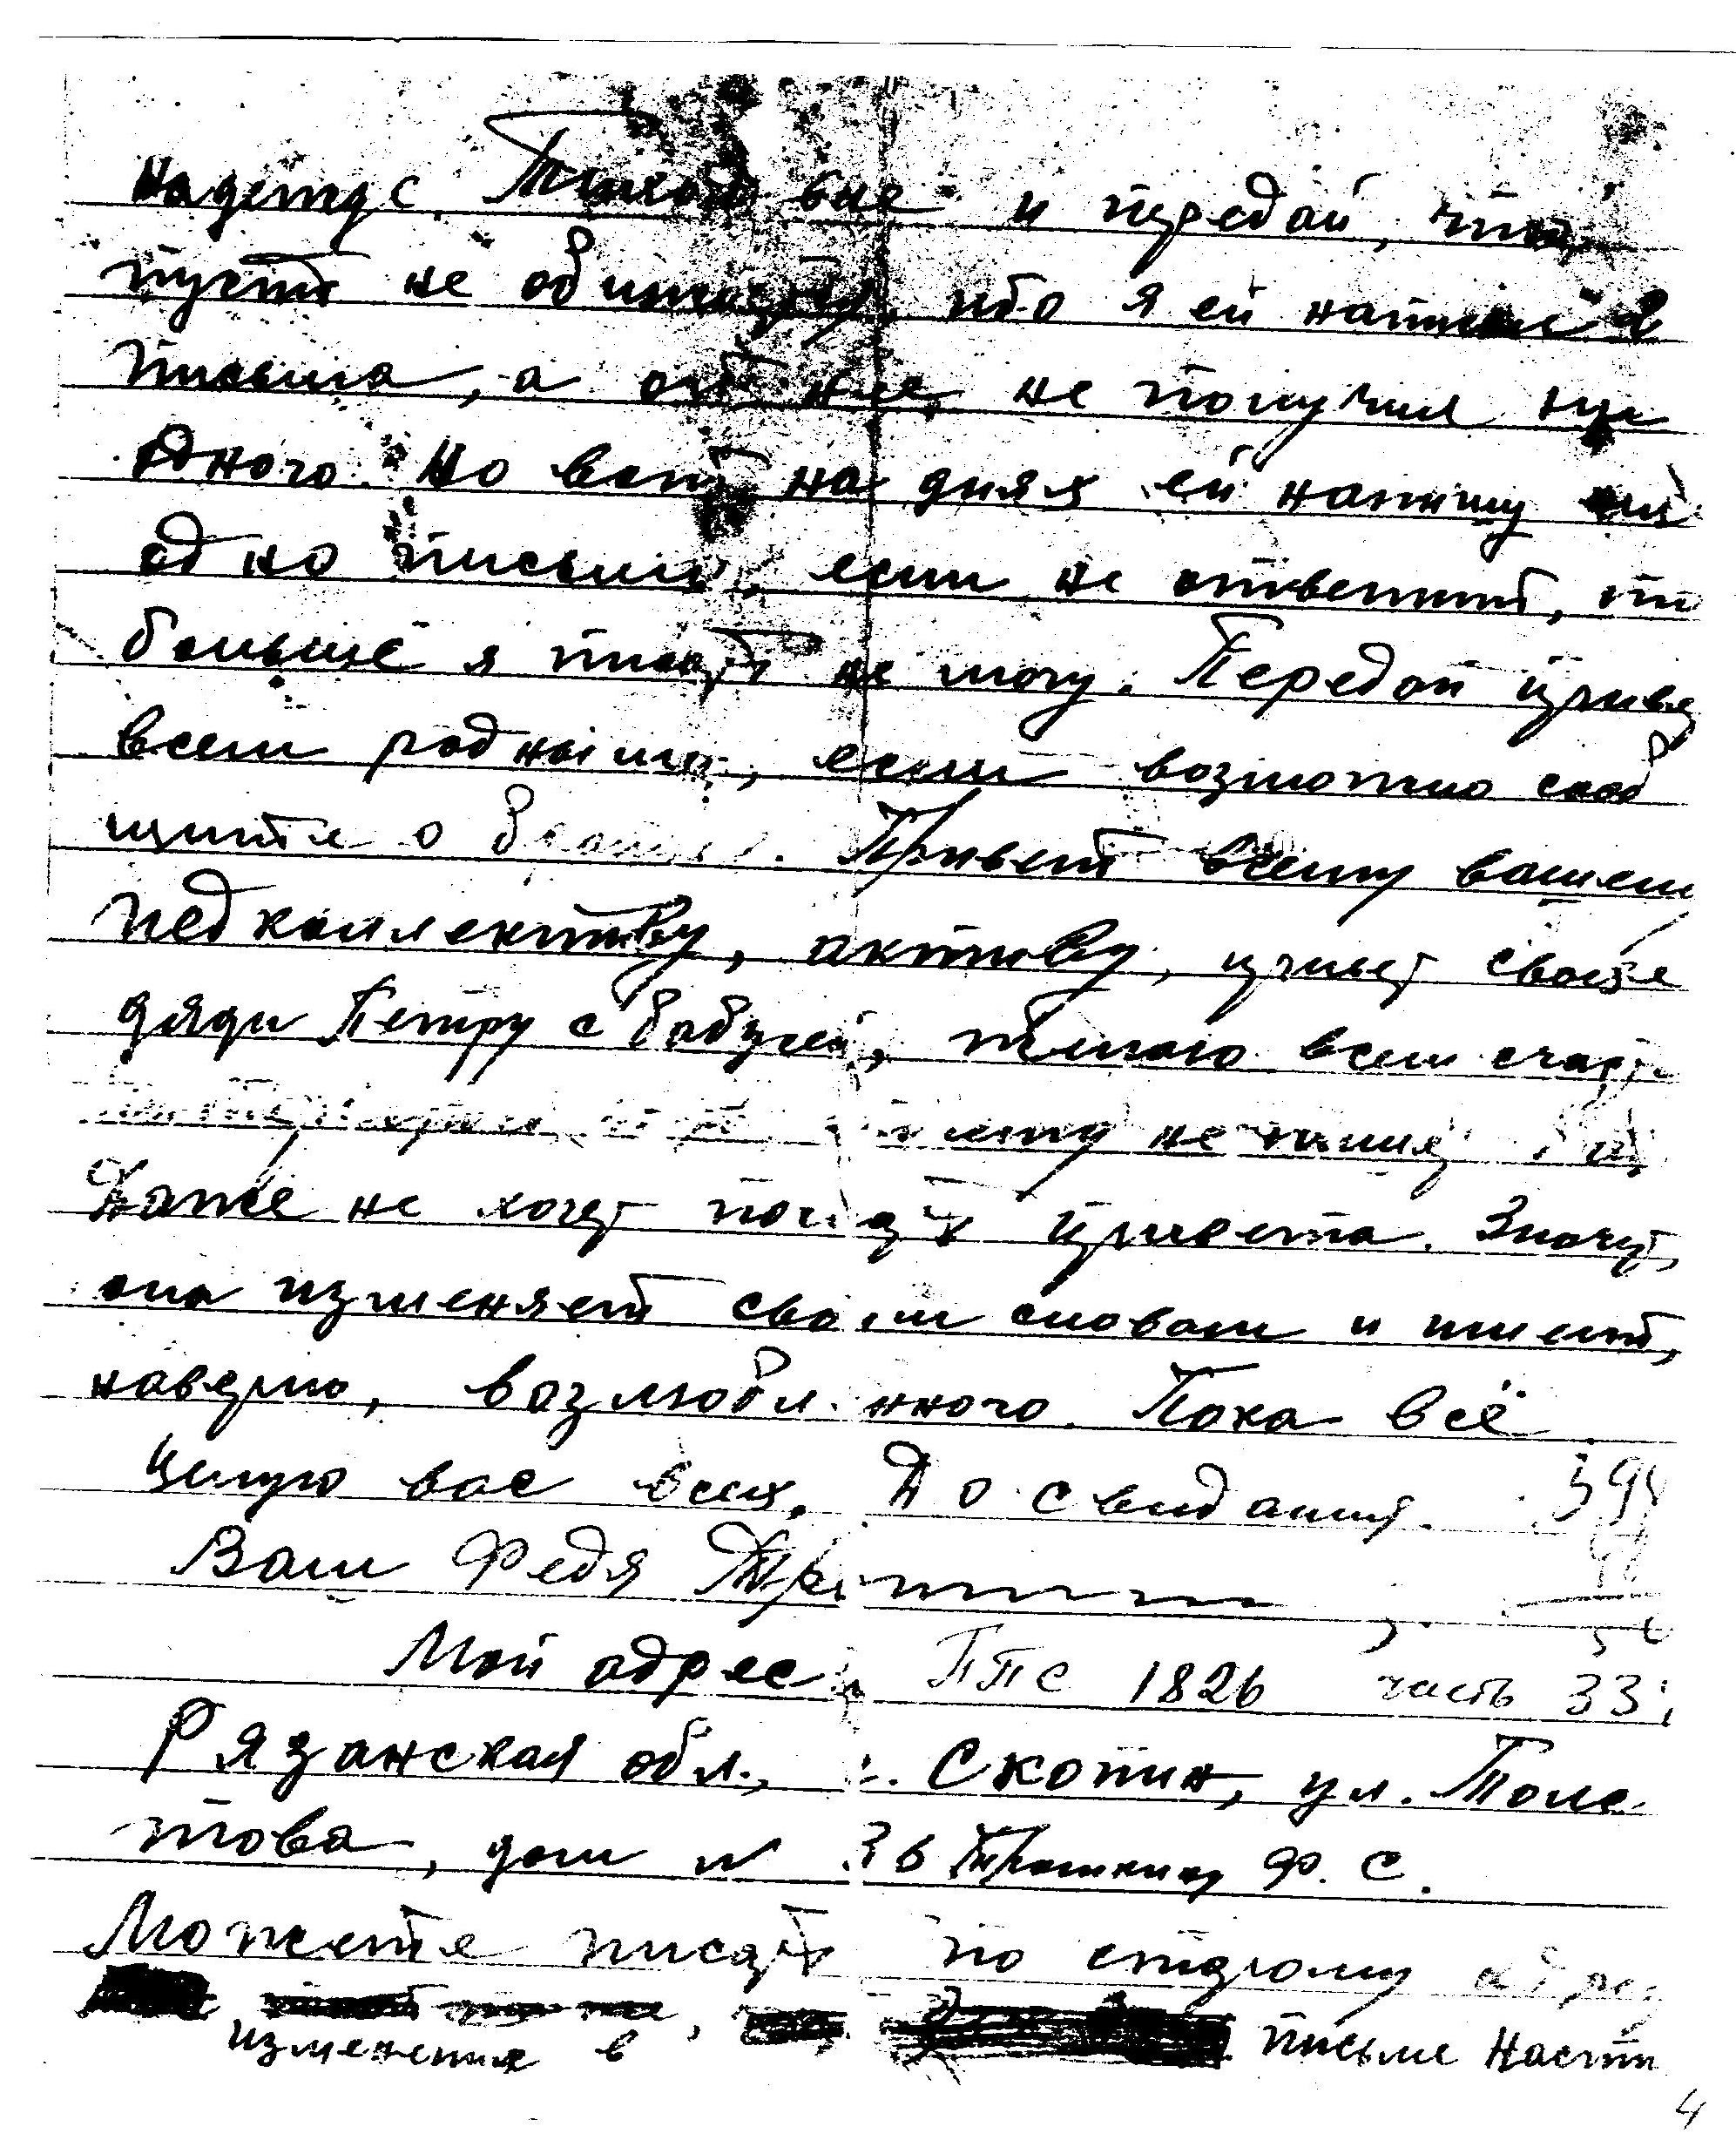 Надежде Тихоновне и передай, что
пусть не обижается, ибо я ей написал 2
письма, а от нее, не получил ни
одного. Но вот на днях ей напишу ещё
одно письмо, если не ответит, то
больше я писать не могу. Передай привет
всем родным, если возможно сооб
щите о братьях. Привет всему вашему
педколлективу, активу, привет своего
дяди Петру с бабулей, желаю всем счастья
не пишет
Даже не хочет послать привета. Значит,
она изменяет своим словам и имеет,
наверно, возлюбленного. Пока всё
Целую вас всех. До свидания.
Ваш Федя
Мой адрес: ППС 1826 часть 33
Рязанская обл., г. Скопин, ул. Толс
това, дом № 36 Трошкину Ф. С.
Можете писать по старому адресу
изменения в письме Насти
4